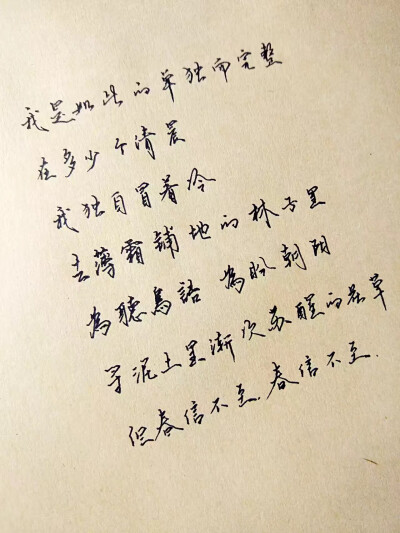 我是如此的单独而完整
在多少个清晨
我独自冒着冷
去薄霜鋪地的林子里
為聽鳥語 為盼朝阳
寻泥土里渐次苏醒的花草
但春信不至.春信不至.